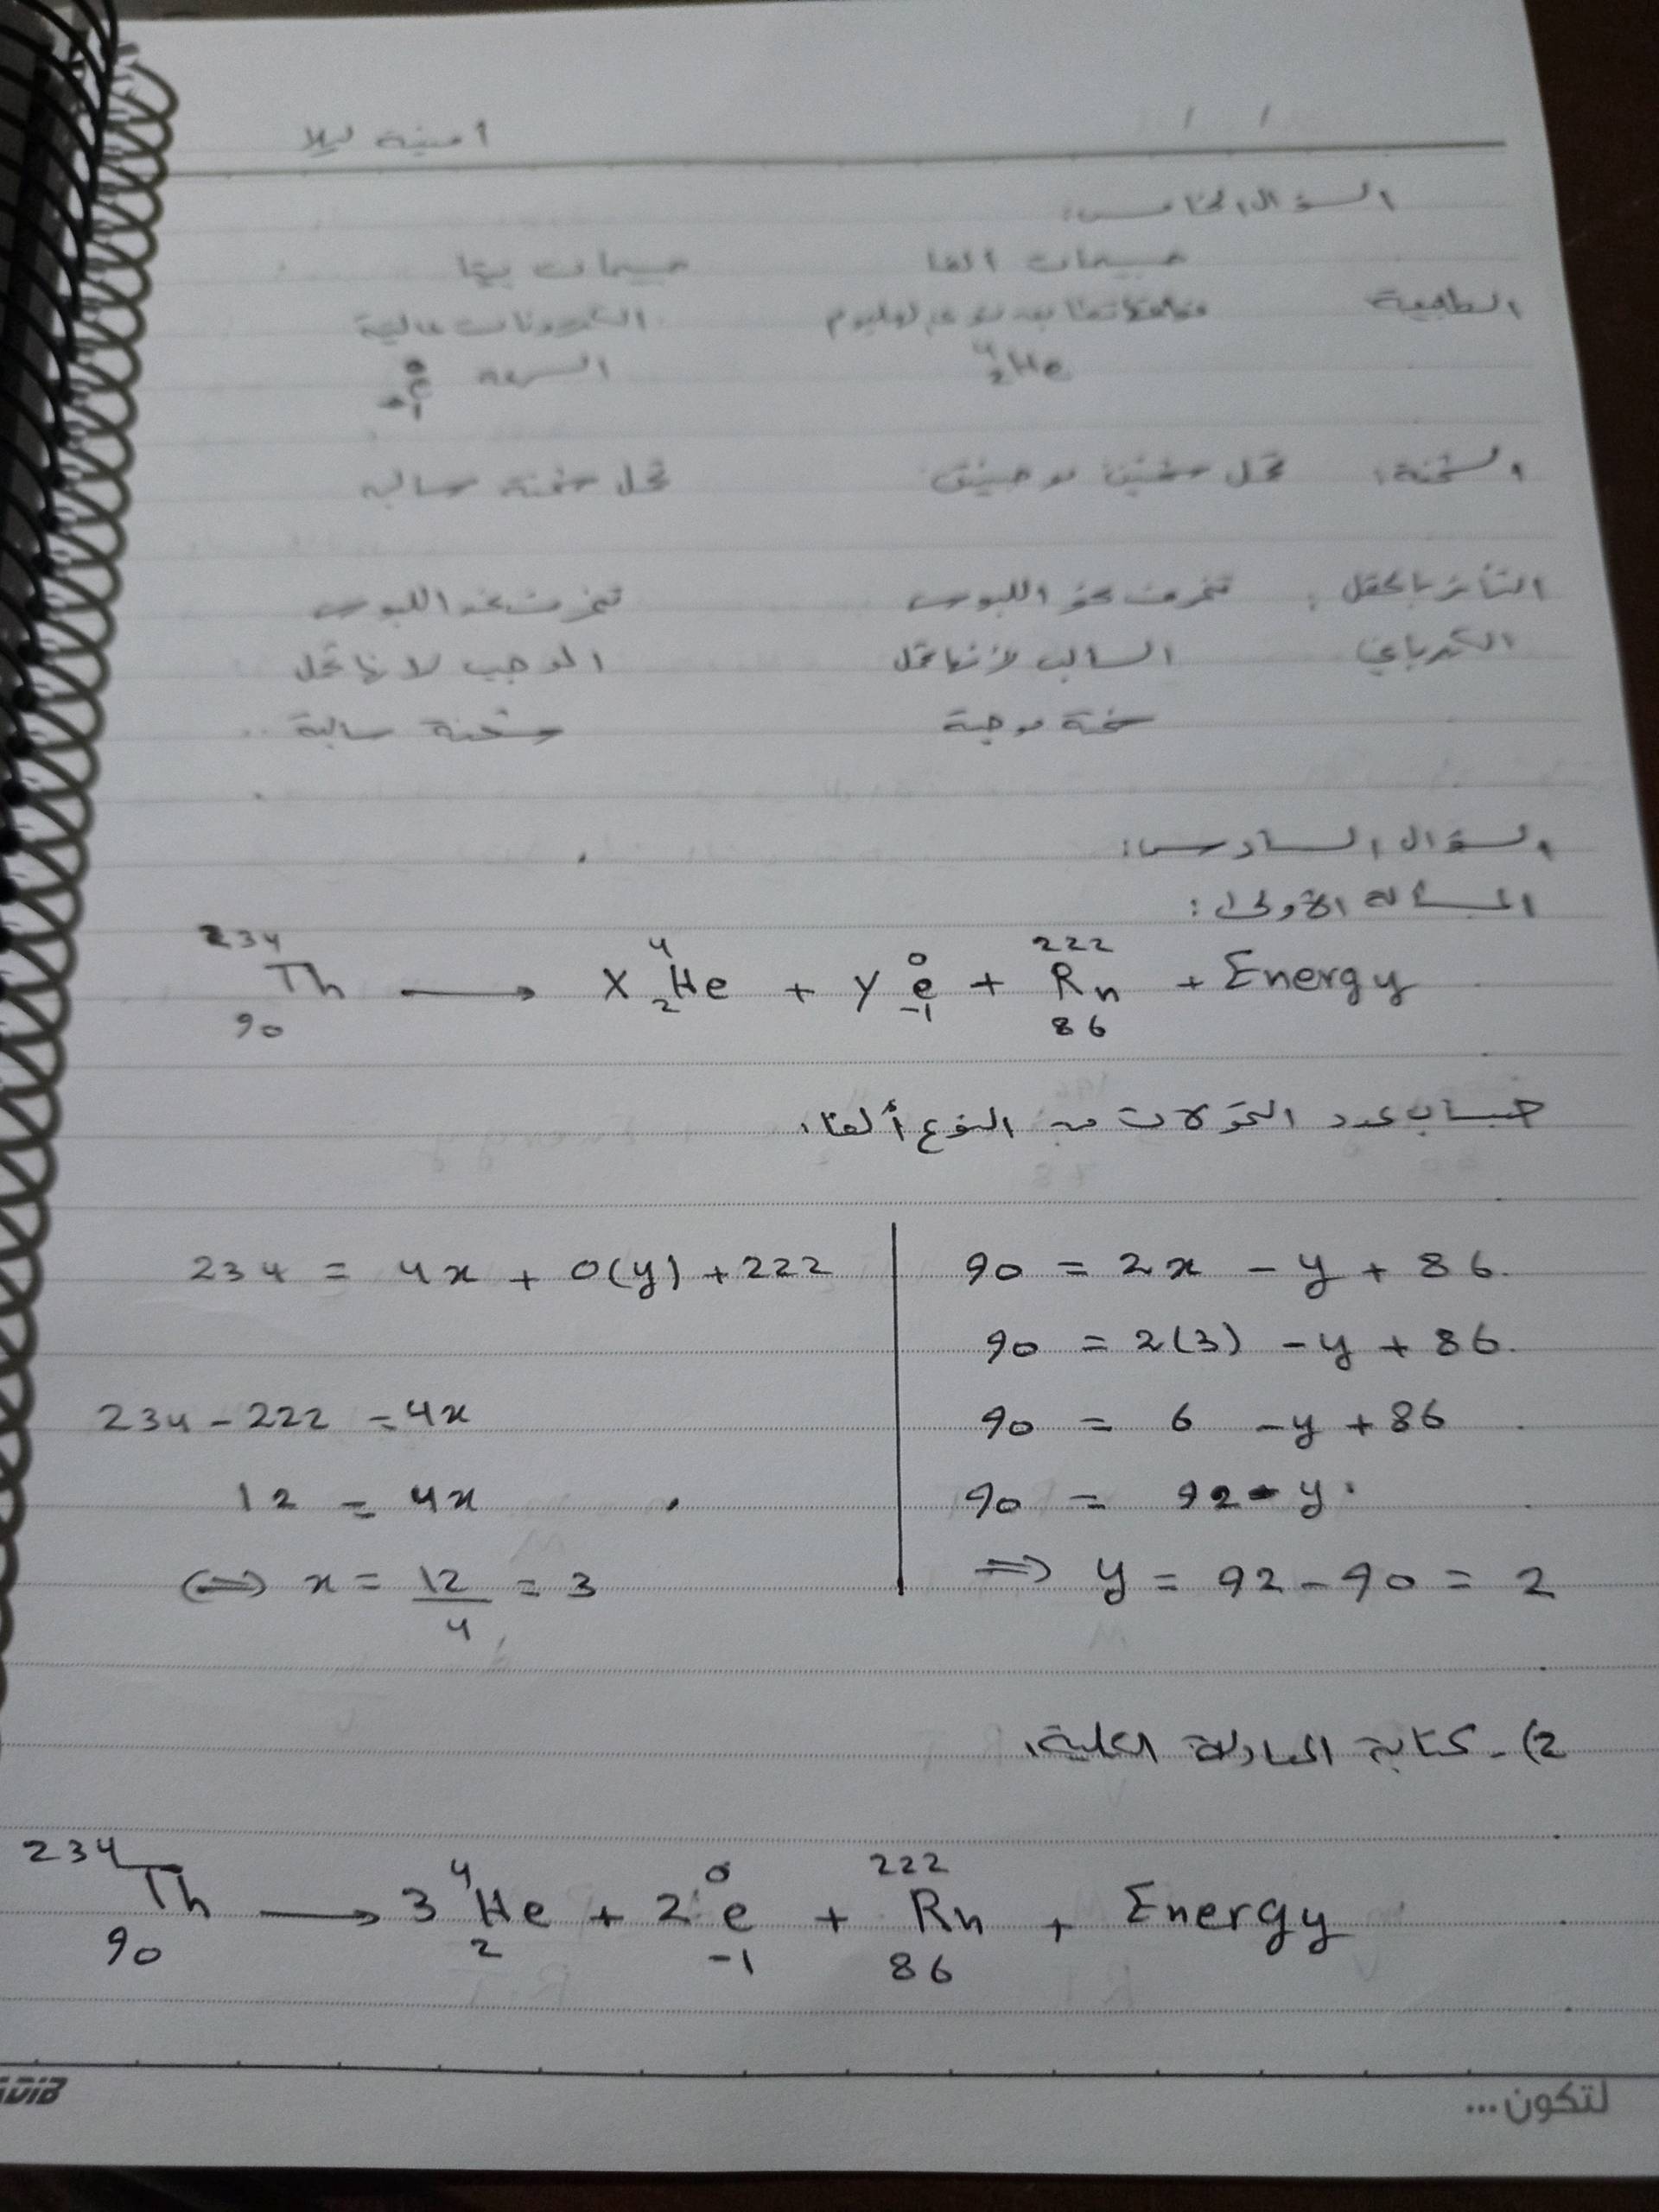 أمنية ليلا
السؤال الخامس:
جسيمات ألفا جسيمات بيتا
الطبيعة الكترونات عالية
السرعة
⁴₂He ⁰₋₁e
الشحنة: تحمل شحنتين موجبتين تحمل شحنة سالبة
التأثر بالحقل: تنحرف نحو اللبوس تنحرف نحو اللبوس
الكهربائي السالب لأنها تحمل الموجب لانها تحمل
شحنة موجبة شحنة سالبة
السؤال السادس:
المسألة الأولى:
²³⁴₉₀Th ⟶ X ⁴₂He + Y ⁰₋₁e + ²²²₈₆Rn + Energy
حساب عدد التحولات من النوع ألفا:
234 = 4x + 0(y) + 222
234 - 222 = 4x
12 = 4x
⟺ x = 12/4 = 3
90 = 2x - y + 86
90 = 2(3) - y + 86
90 = 6 - y + 86
90 = 92 - y
⟹ y = 92 - 90 = 2
2)- كتابة المعادلة الكلية:
²³⁴₉₀Th ⟶ 3 ⁴₂He + 2 ⁰₋₁e + ²²²₈₆Rn + Energy
لتكون...